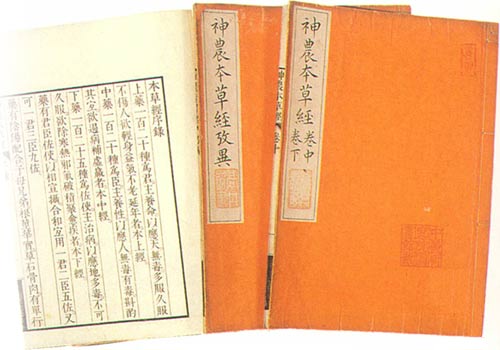 神農本草經 卷中
卷下
神農本草經攷異
本草經序錄
上藥一百二十種爲君主養命以應天無毒多服久服
不傷人欲輕身益氣不老延年者本上經
中藥一百二十種爲臣主養性以應人無毒有毒斟酌
其宜欲遏病補虛羸者本中經
下藥一百二十五種爲佐使主治病以應地多毒不可
久服欲除寒熱邪氣破積聚愈疾者本下經
藥有君臣佐使以相宣攝合和宜用一君二臣五佐又
可一君三臣九佐
藥有陰陽配合子母兄弟根莖華實草石骨肉有單行